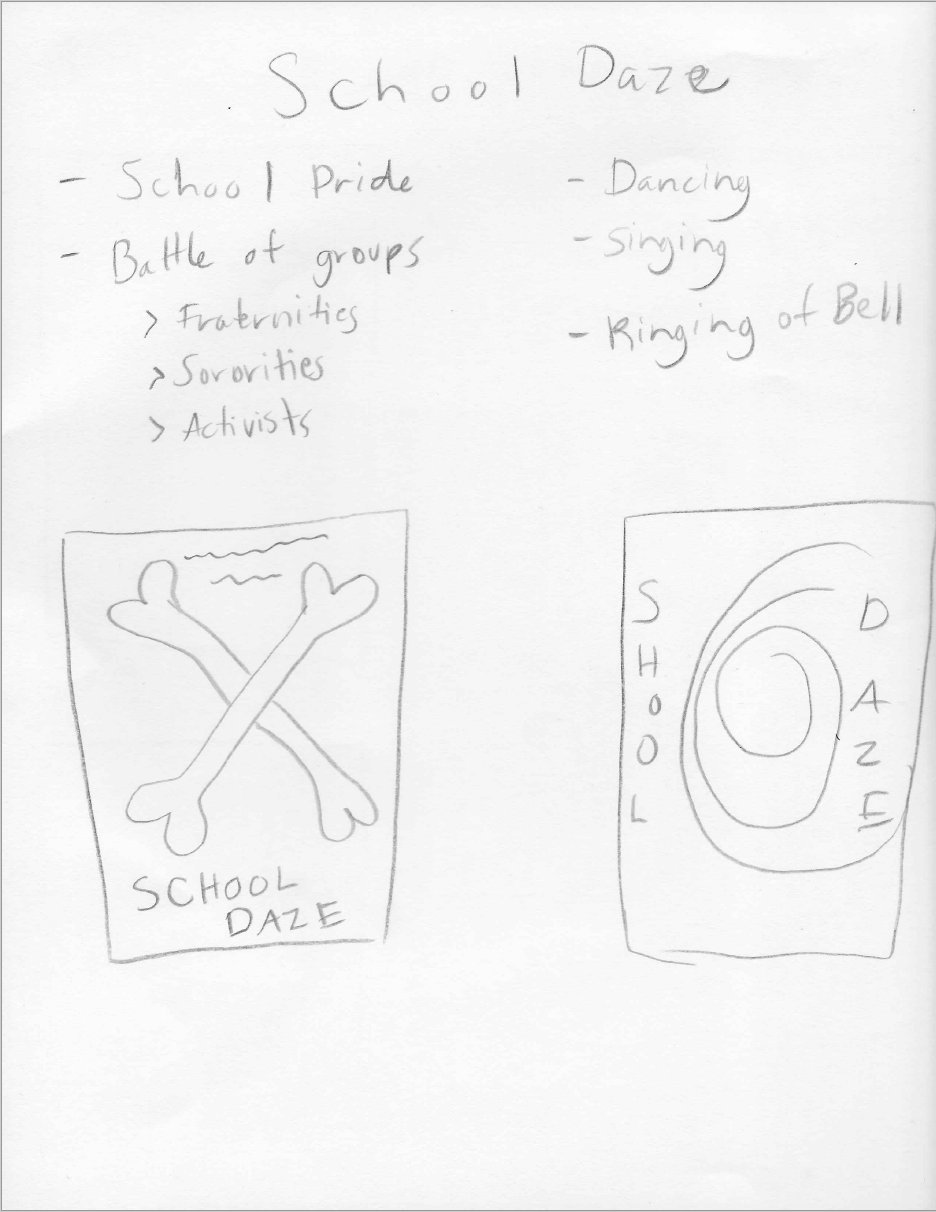 School Daze
- School Pride
- Battle of groups
> Fraternities
> Sororities
> Activists
- Dancing
- Singing
- Ringing of Bell
SCHOOL
DAZE
SHOOL
DAZE